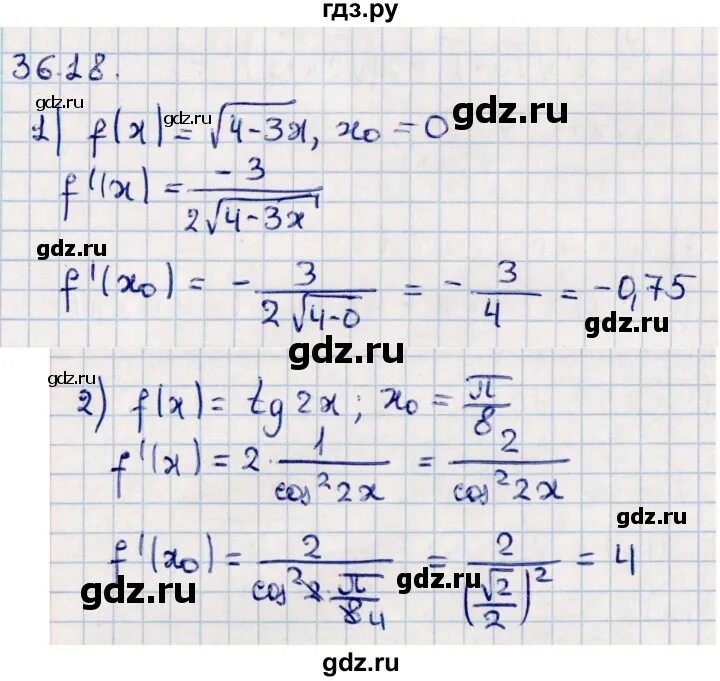 гдз.ру
36.18.
gdz.ru
1) f(x) = √(4-3x), x₀ = 0
gdz.ru
gdz.ru
f'(x) = -3 / (2√(4-3x))
gdz.ru
f'(x₀) = - 3 / (2√(4-0)) = - 3/4 = -0,75
gdz.ru
gdz.ru
gdz.ru
2) f(x) = tg 2x; x₀ = π/8
f'(x) = 2 · 1/(cos² 2x) = 2/(cos² 2x)
gdz.ru
f'(x₀) = 2/(cos² 2 · π/8 4) = 2/(√2/2)² = 4
gdz.ru
gdz.ru
gdz.ru